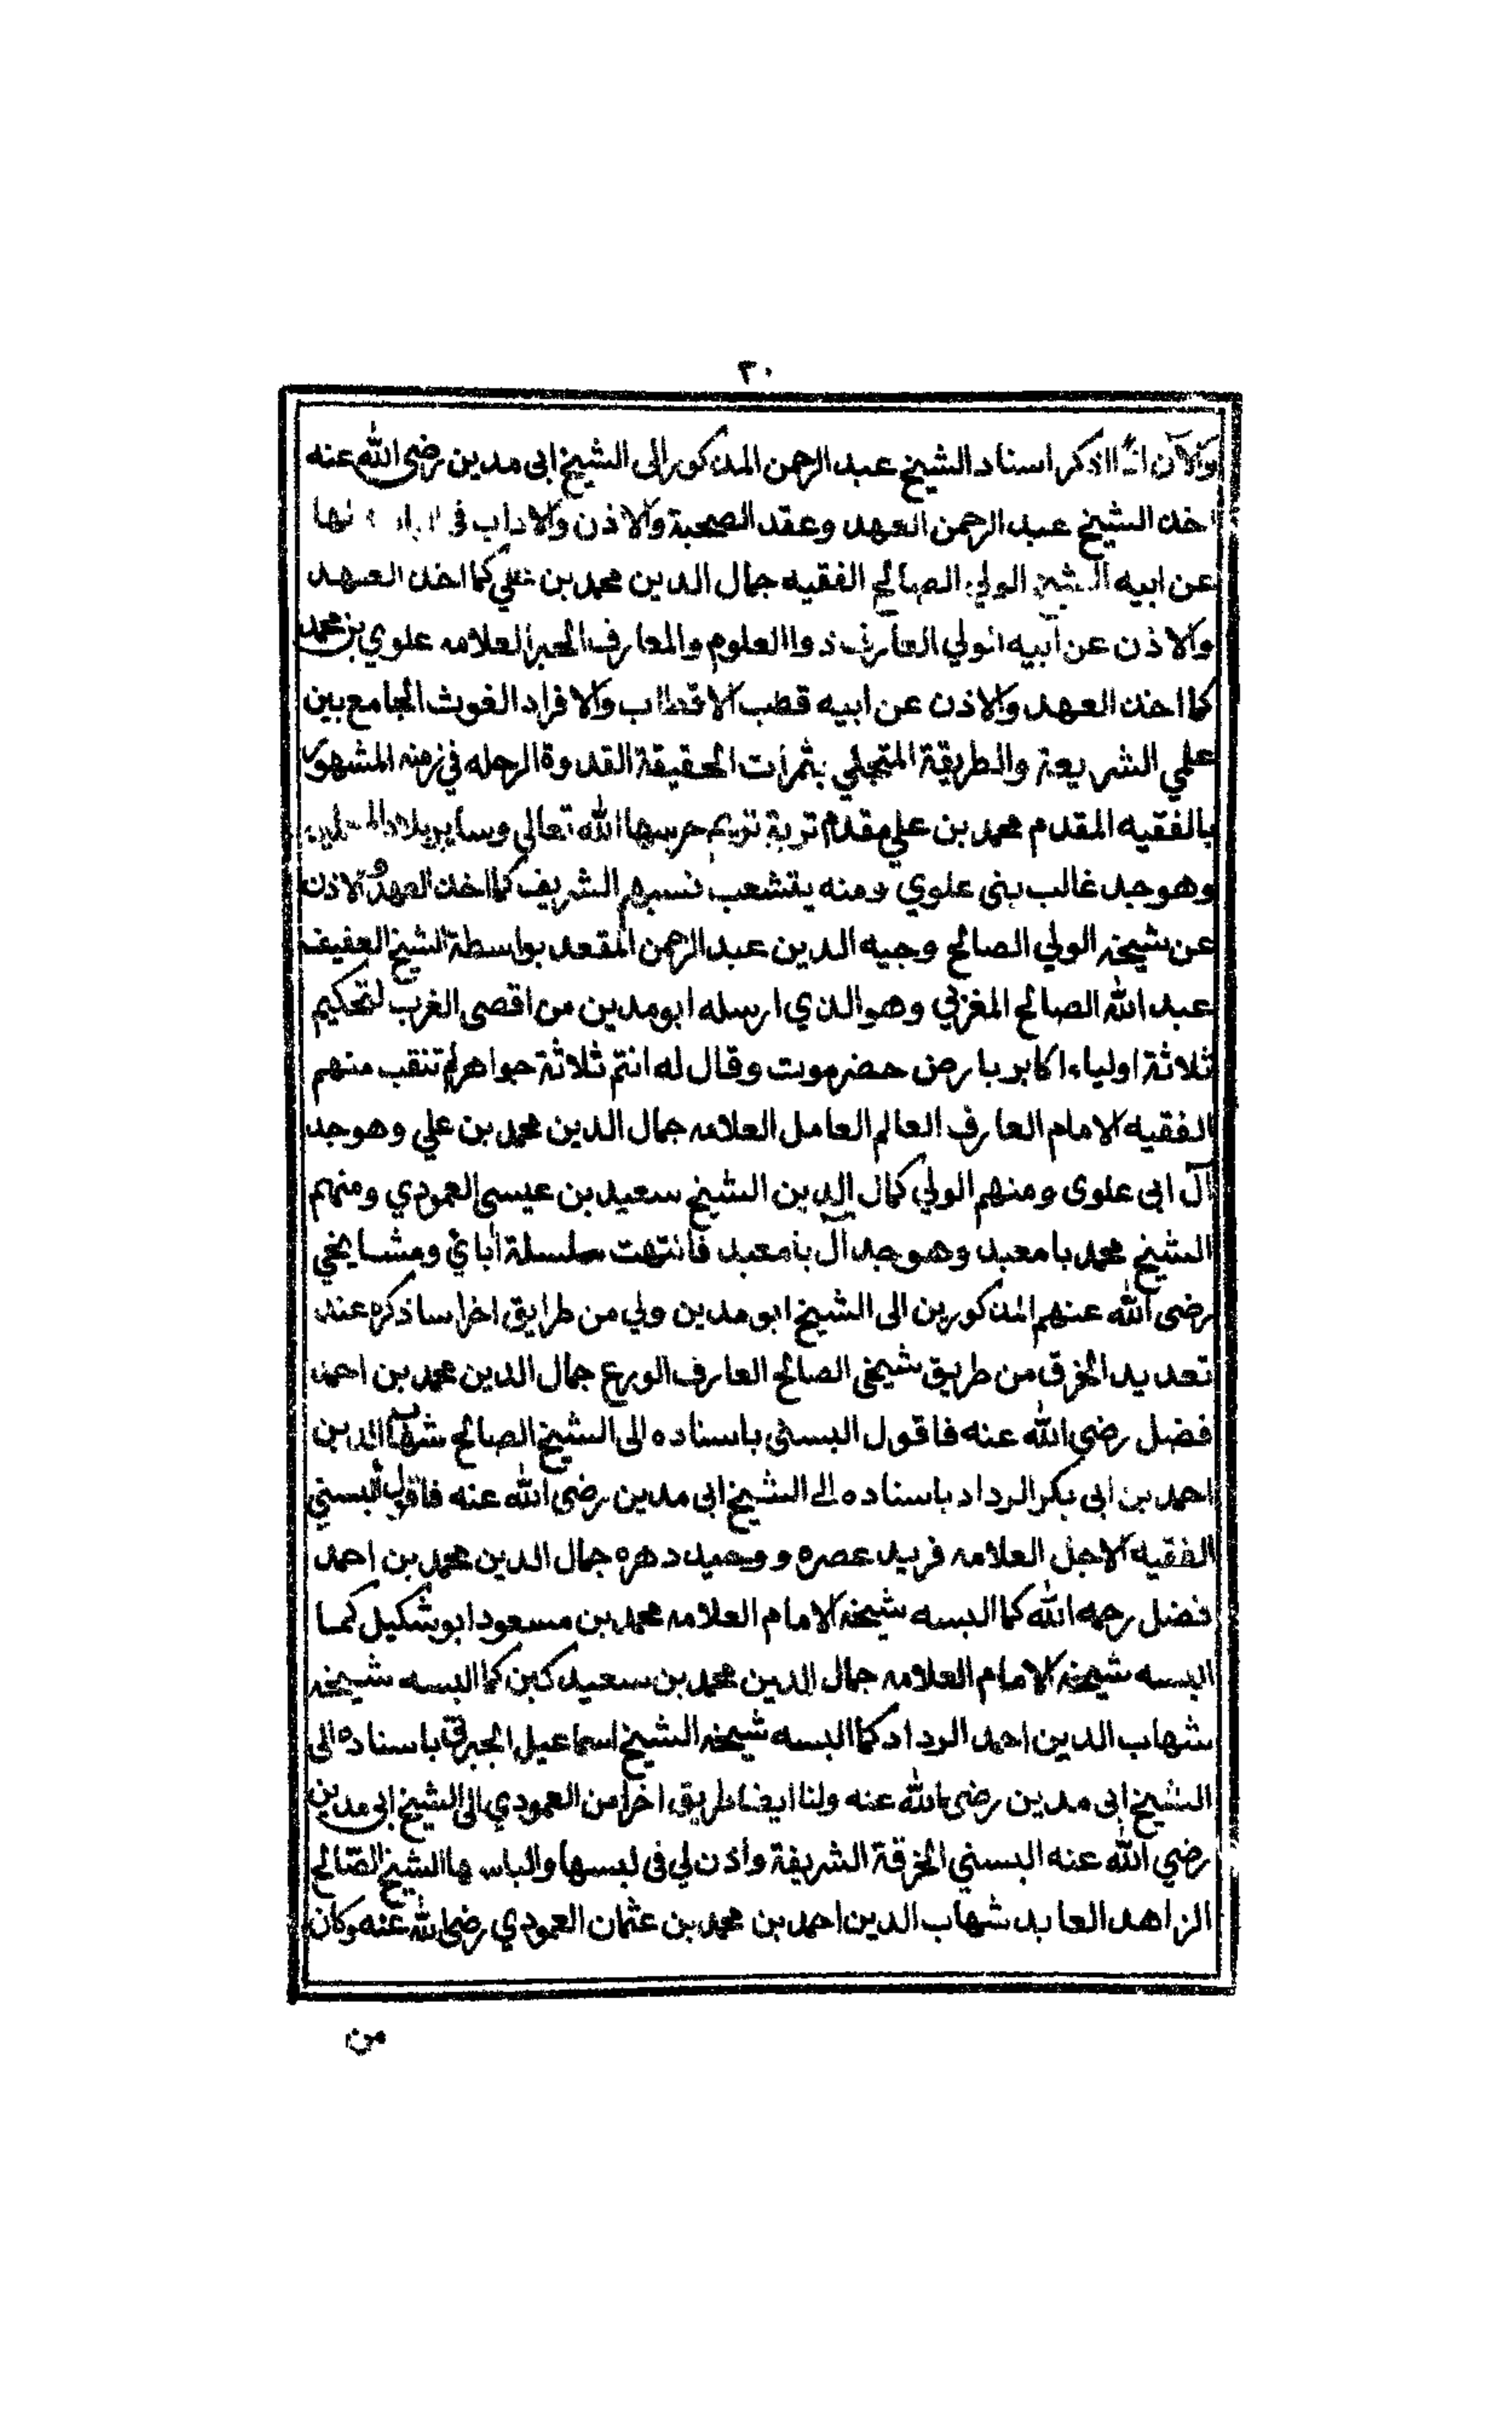 ٣٠
والآن انا اذكر اسناد الشيخ عبد الرحمن المذكور الى الشيخ ابى مدين رضى الله عنه
اخذ الشيخ عبد الرحمن العهد وعقد الصحبة والاذن والاداب فى
عن ابيه الشيخ الولي الصالح الفقيه جمال الدين محمد بن علي كما اخذ العهد
والاذن عن ابيه الولي العارف ذوا العلوم والمعارف الحبر العلامه علوي بن محمد
كما اخذ العهد والاذن عن ابيه قطب الاقطاب والافراد الغوث الجامع بين
علمي الشريعة والطريقة المتجلي بثمرات الحقيقة القدوة الرحله في زمنه المشهور
بالفقيه المقدم محمد بن علي مقدم تربة تريم حرسها الله تعالي وساير بلاد المسلمين
وهو جد غالب بنى علوي ومنه يتشعب نسبهم الشريف كما اخذ العهد والاذن
عن شيخه الولي الصالح وجيه الدين عبد الرحمن المقعد بواسطة الشيخ العفيف
عبد الله الصالح المغربي وهو الذي ارسله ابو مدين من اقصى الغرب لتحكيم
ثلاثة اولياء اكابر بارض حضرموت وقال له انتم ثلاثة جواهر لم تنقب منهم
الفقيه الامام العارف العالم العامل العلامه جمال الدين محمد بن علي وهو جد
آل ابى علوى ومنهم الولي كمال الدين الشيخ سعيد بن عيسى العمودي ومنهم
الشيخ محمد بامعبد وهو جد آل بامعبد فانتهت سلسلة اباؔئي ومشايخي
رضى الله عنهم المذكورين الى الشيخ ابو مدين ولي من طرايق اخرا ساذكره عند
تعديد الخرق من طريق شيخى الصالح العارف الورع جمال الدين محمد بن احمد
فضل رضي الله عنه فاقول البسنى باسناده الى الشيخ الصالح شهاب الدين
احمد بن ابى بكر الرداد باسناده الے الشيخ ابى مدين رضى الله عنه فاقول البسني
الفقيه الاجل العلامه فريد عصره ووحيد دهره جمال الدين محمد بن احمد
فضل رحمه الله كما البسه شيخه الامام العلامه محمد بن مسعود ابو شكيل كما
البسه شيخه الامام العلامه جمال الدين محمد بن سعيد كبن كما البسه شيخه
شهاب الدين احمد الرداد كما البسه شيخه الشيخ اسماعيل الجبرتى باسناده الى
الشيخ ابى مدين رضى الله عنه ولنا ايضا طريق اخرا من العمودي الى الشيخ ابى مدين
رضي الله عنه البسني الخرقة الشريفة واذن لي فى لبسها والباسها الشيخ الصالح
الزاهد العابد شهاب الدين احمد بن محمد بن عثمان العمودي رضى الله عنه وكان
من